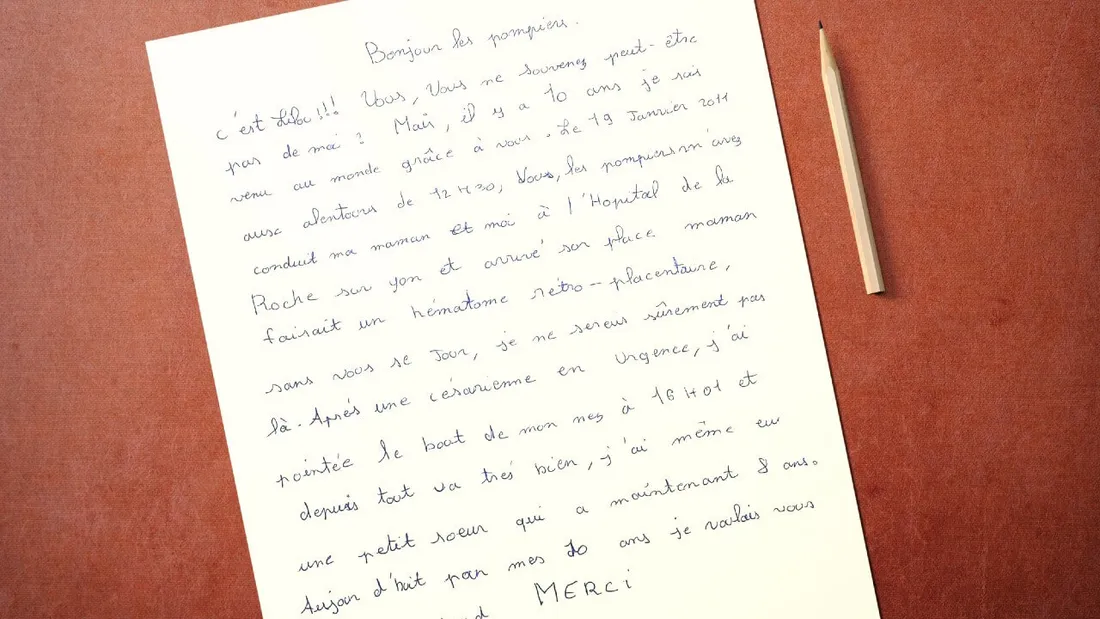 Bonjour les pompiers.
c'est Lilou!!! Vous, Vous ne souvenez peut-être
pas de moi? Mais, il y a 10 ans je suis
venu au monde grâce à vous. Le 19 Janvier 2011
aux alentours de 12H30, Vous, les pompiers m'avez
conduit ma maman et moi à l'Hopital de la
Roche sur yon et arrivé sur place maman
faisait un hématome rétro-placentaire,
sans vous se Jour, je ne serais sûrement pas
là. Aprés une césarienne en Urgence, j'ai
pointée le bout de mon nez à 16H01 et
depuis tout va trés bien, j'ai même eu
une petit soeur qui a maintenant 8 ans.
Aujour d'huit pour mes 10 ans je voulais vous
MERCI